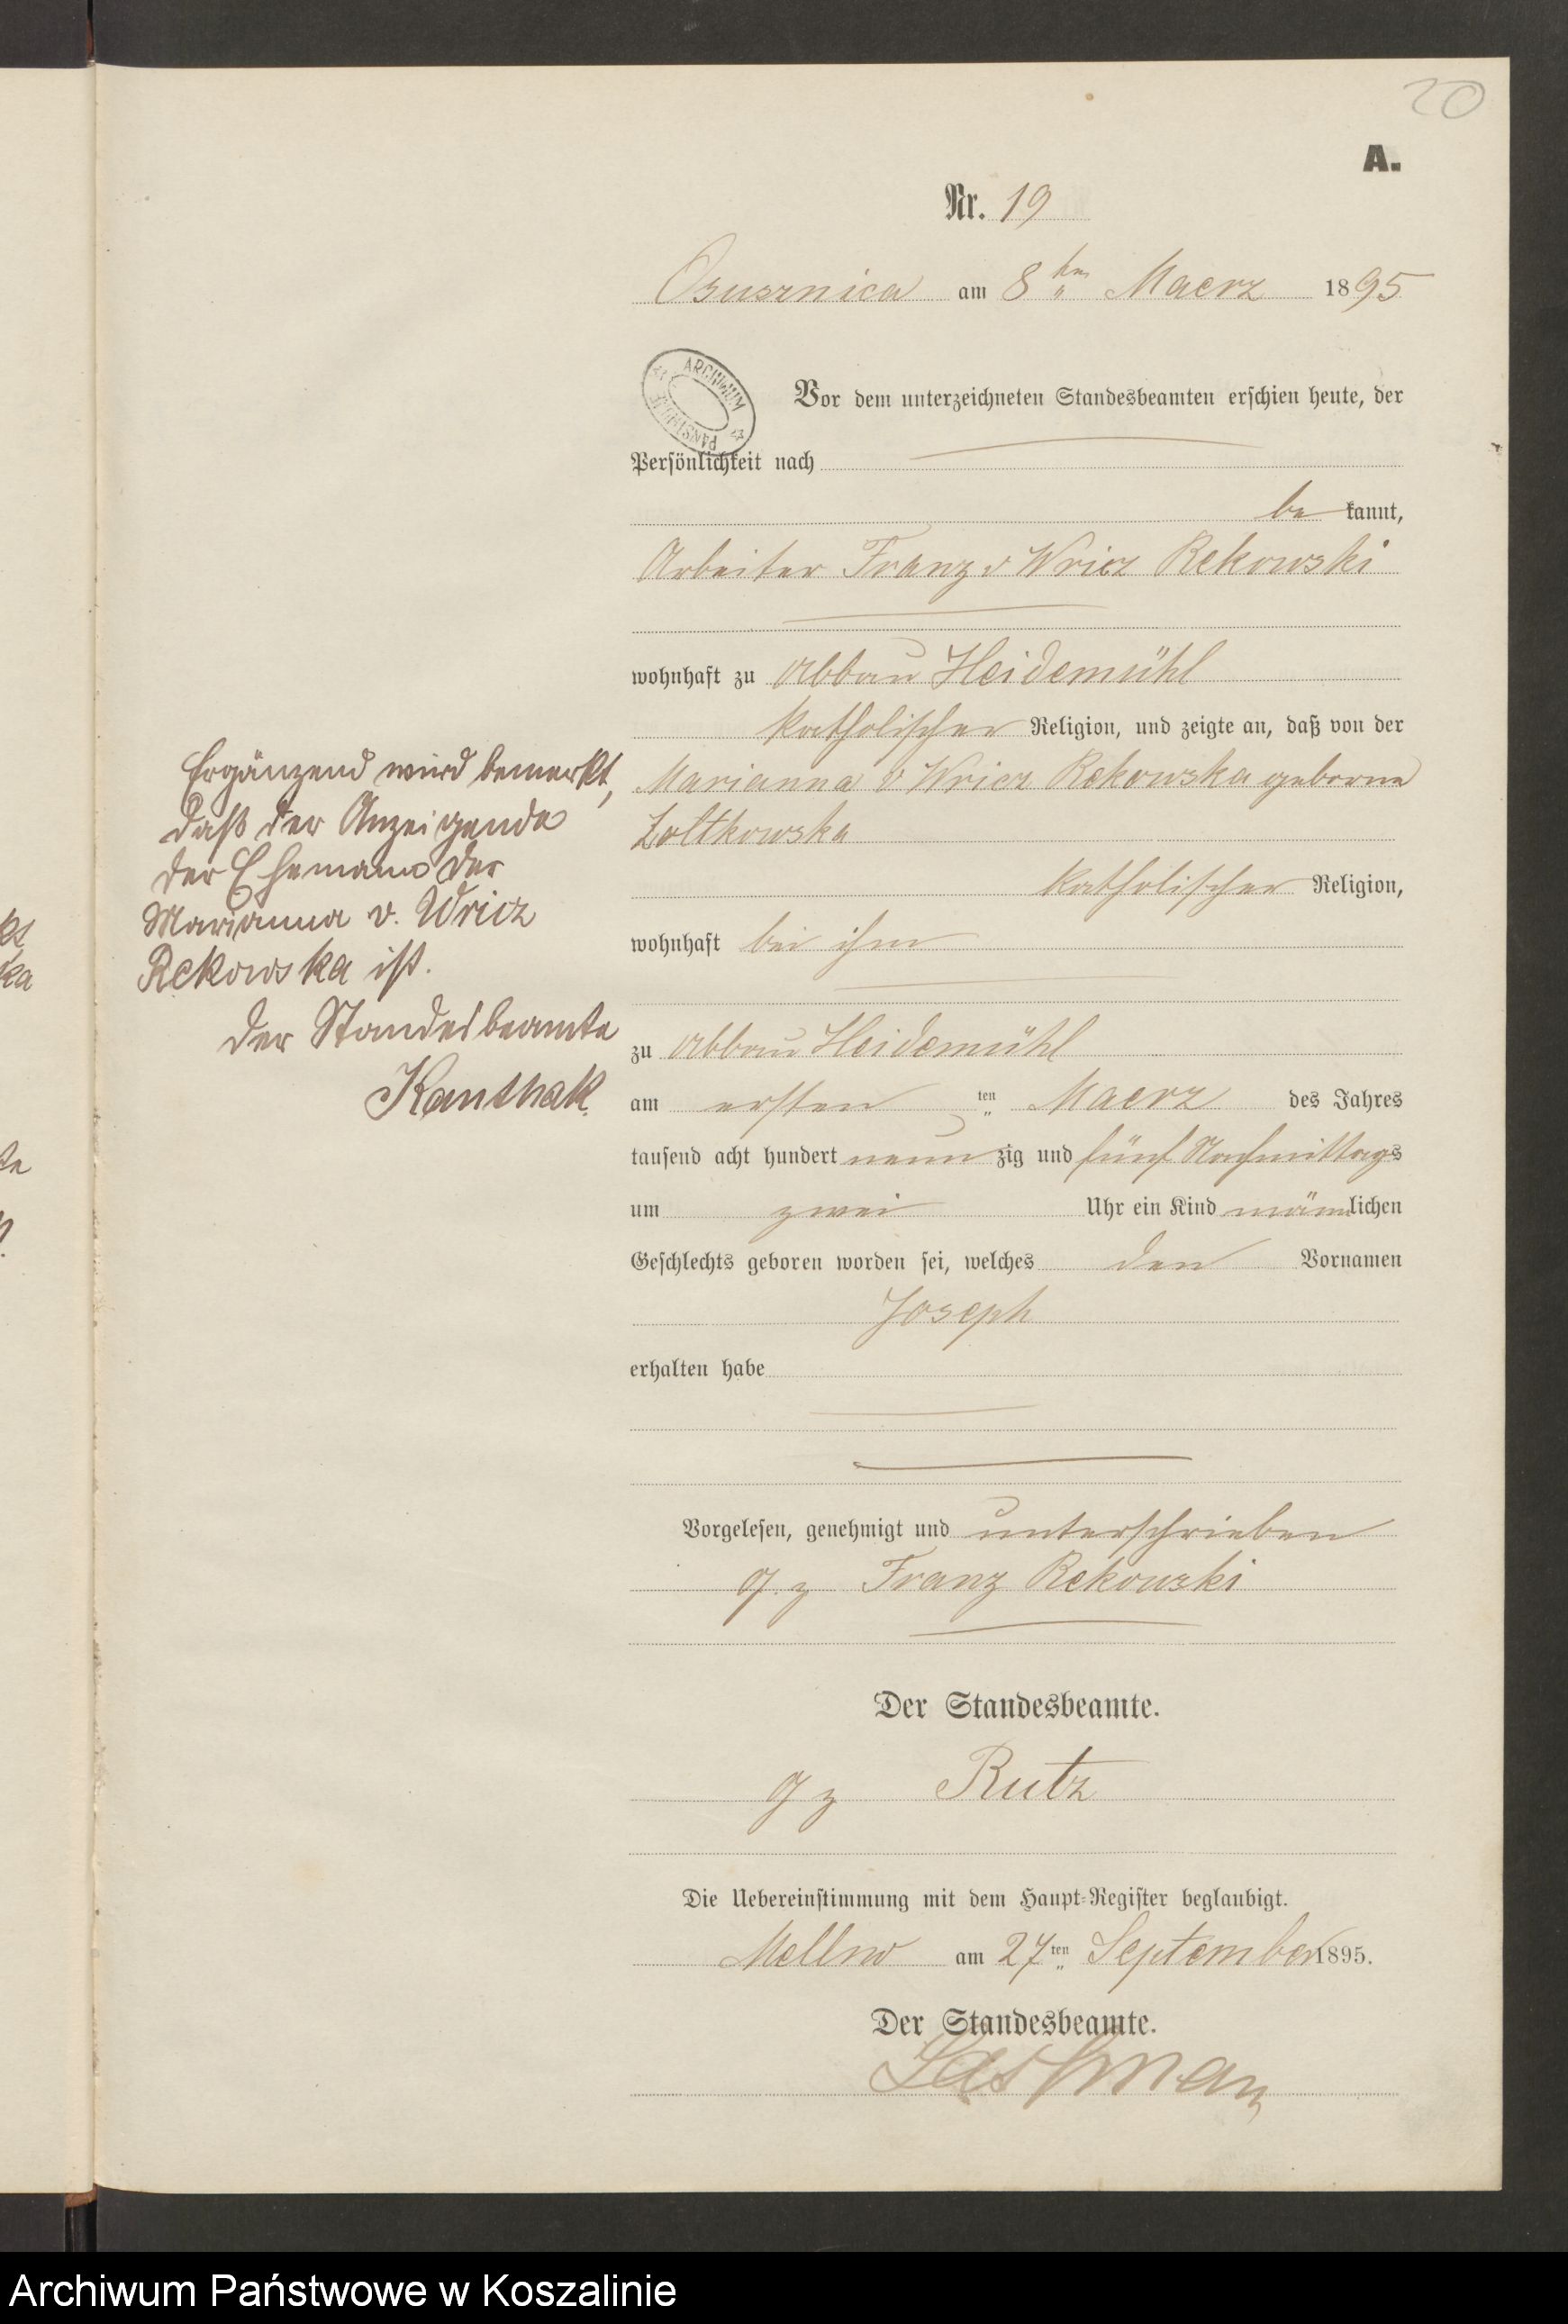 20
A.
Nr. 19
Osusznica am 8ten Maerz 1895
ARCHIWUM PAŃSTWOWE
Vor dem unterzeichneten Standesbeamten erschien heute, der
Persönlichkeit nach
be kannt,
Arbeiter Franz v Wricz Rekowski
wohnhaft zu Abbau Heidemühl
katholischer Religion, und zeigte an, daß von der
Marianna v Wricz Rekowska geborne
Zoltkowska
katholischer Religion,
wohnhaft bei ihm
zu Abbau Heidemühl
am ersten ten Maerz des Jahres
tausend acht hundert neun zig und fünf Nachmittags
um zwei Uhr ein Kind männlichen
Geschlechts geboren worden sei, welches den Vornamen
Joseph
erhalten habe
Vorgelesen, genehmigt und unterschrieben
gz Franz Rekowski
Der Standesbeamte.
gz Rutz
Die Uebereinstimmung mit dem Haupt-Register beglaubigt.
Mellno am 27ten September 1895.
Der Standesbeamte.
Ergänzend wird bemerkt,
daß der Anzeigende
der Ehemann der
Marianna v. Wricz
Rekowska ist.
Der Standesbeamte
Kanthak.
Archiwum Państwowe w Koszalinie